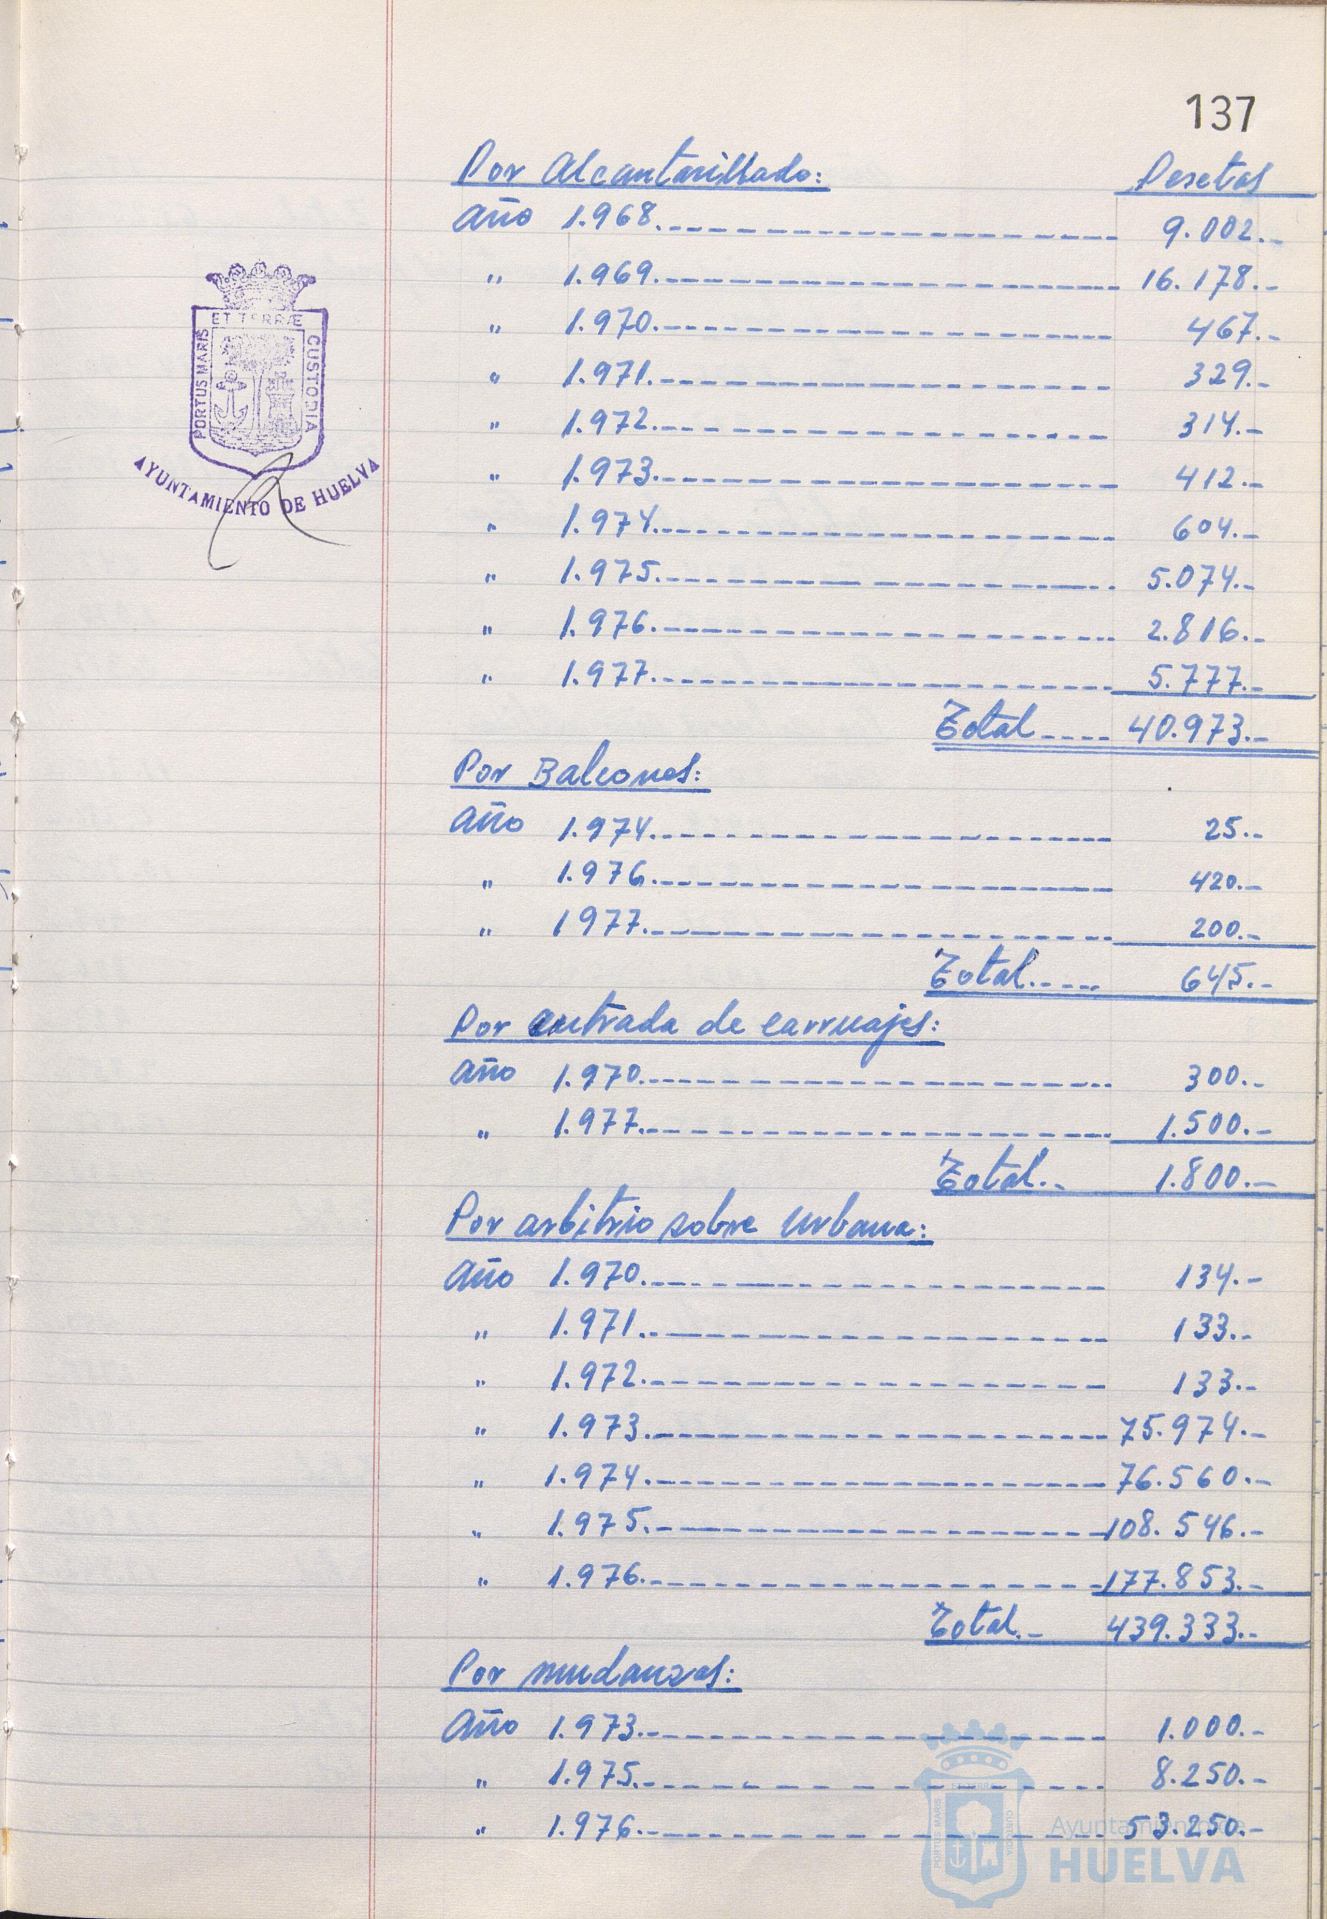 137
Por Alcantarillado: Pesetas
Año 1.968.------------ 9.002.-
" 1.969.------------ 16.178.-
" 1.970.------------ 467.-
" 1.971.------------ 329.-
" 1.972.------------ 314.-
" 1.973.------------ 412.-
" 1.974.------------ 604.-
" 1.975.------------ 5.074.-
" 1.976.------------ 2.816.-
" 1.977.------------ 5.777.-
Total ---- 40.973.-
Por Balcones:
Año 1.974.------------ 25.-
" 1.976.------------ 420.-
" 1977.------------ 200.-
Total.---- 645.-
Por entrada de carruajes:
Año 1.970.------------ 300.-
" 1.977.------------ 1.500.-
Total.- 1.800.-
Por arbitrio sobre Urbana:
Año 1.970.------------ 134.-
" 1.971.------------ 133.-
" 1.972.------------ 133.-
" 1.973.------------ 75.974.-
" 1.974.------------ 76.560.-
" 1.975.------------ 108.546.-
" 1.976.------------ 177.853.-
Total.- 439.333.-
Por mudanzas:
Año 1.973.------------ 1.000.-
" 1.975.------------ 8.250.-
" 1.976.------------ 53.250.-
PORTUS MARIS ET TERRÆ CUSTODIA
AYUNTAMIENTO DE HUELVA
PORTUS MARIS ET TERRÆ CUSTODIA
Ayuntamiento de
HUELVA